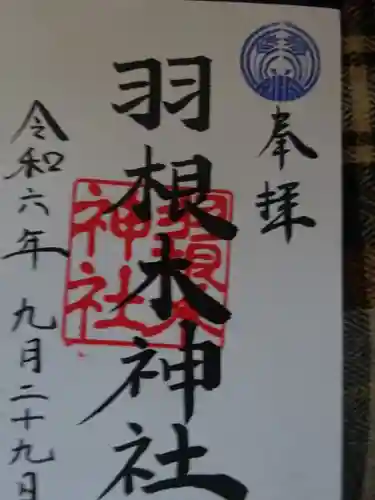 奉拝
羽根木神社
羽根木
神社
令和六年九月二十九日